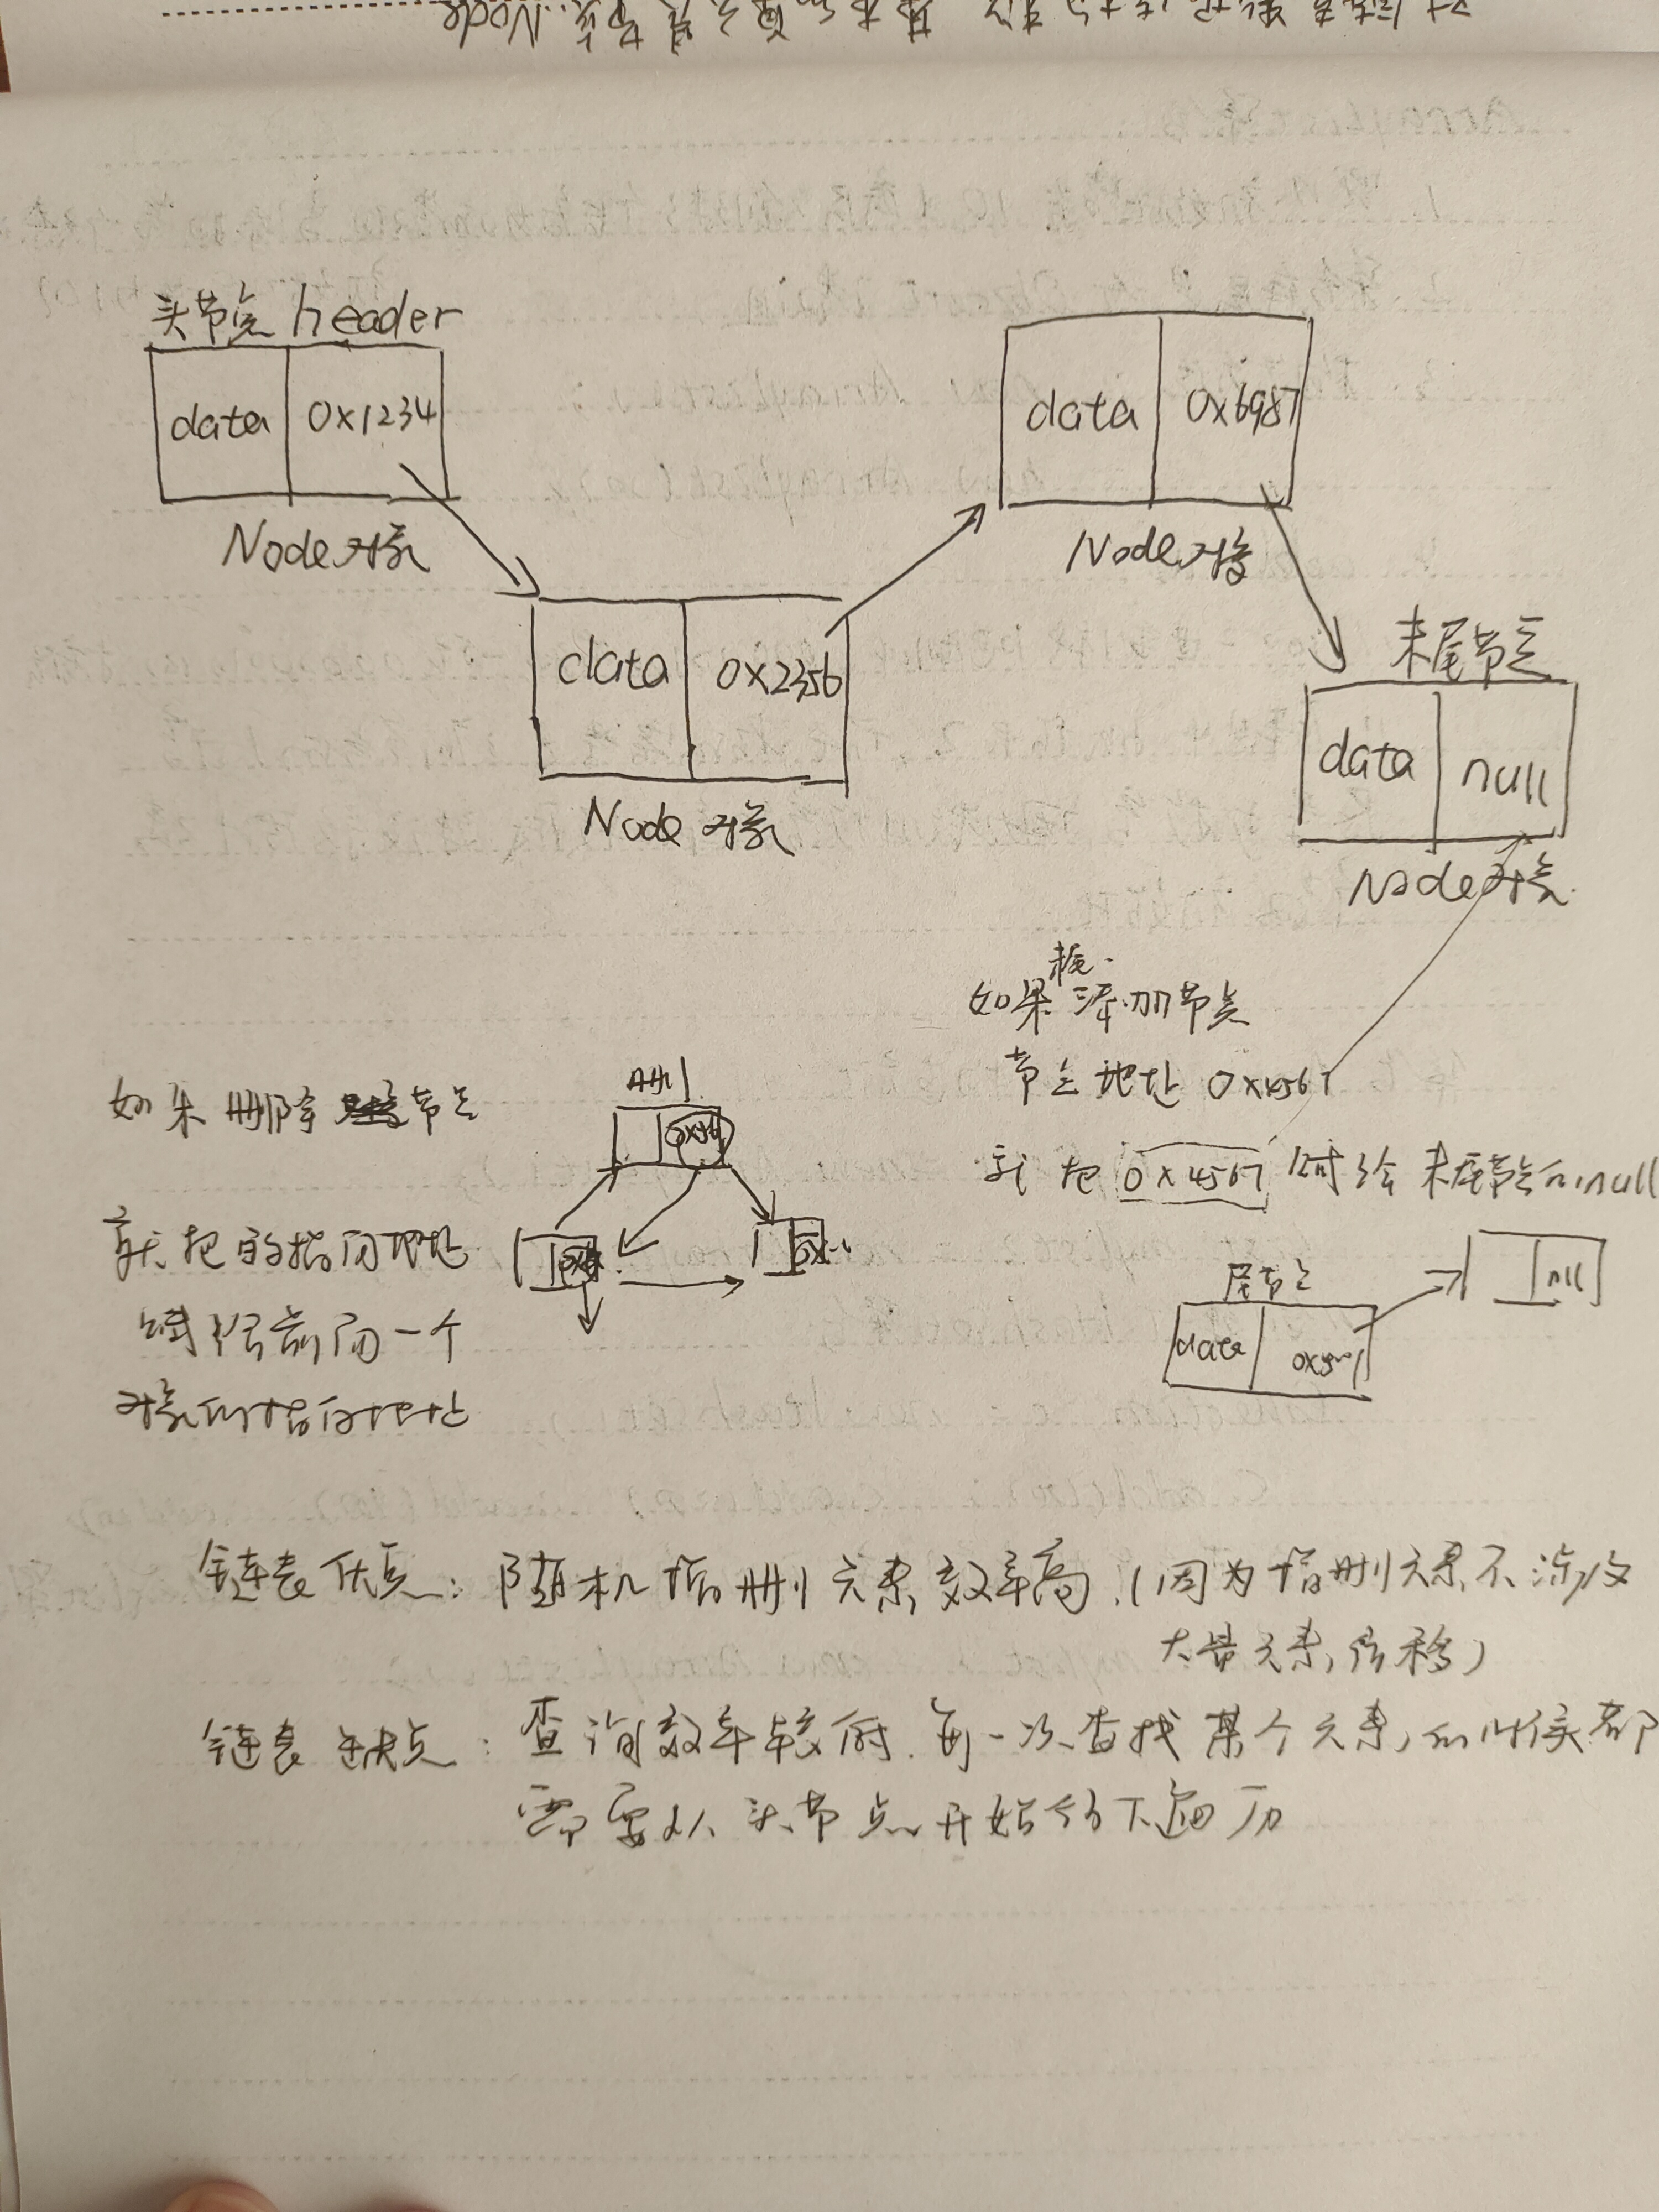 头节点 header
data 0x1234
Node对象
data 0x2356
Node对象
data 0x6987
Node对象
末尾节点
data null
Node对象
末尾
如果添加节点
节点地址 0x4567
就把 0x4567 赋给末尾节点的null
尾节点
data
null
如果删除节点
删
就把的指向地址
赋给前面一个
对象的指向地址
链表优点：随机增删元素效率高.(因为增删元素不涉及
大量元素位移)
链表缺点：查询效率较低.每一次查找某个元素的时候都
需要从头节点开始往下遍历